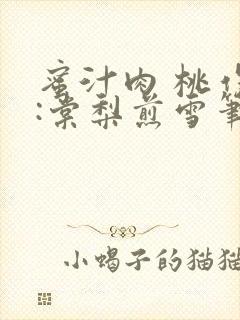 蜜汁肉桃
:棠梨煎雪筆
小蝎子的猫猫